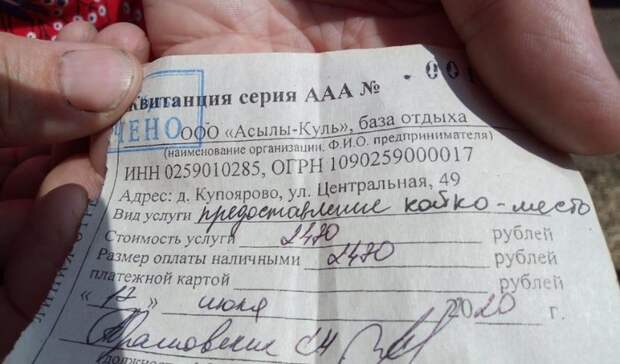 Квитанция серия ААА № 00
ЧЕНО
ООО «Асылы-Куль», база отдыха
(наименование организации, Ф.И.О. предпринимателя)
ИНН 0259010285, ОГРН 1090259000017
Адрес: д. Купоярово, ул. Центральная, 49
Вид услуги предоставление койко-место
Стоимость услуги 2470 рублей
Размер оплаты наличными 2470 рублей
платежной картой рублей
« 17 » июня 2020 г.